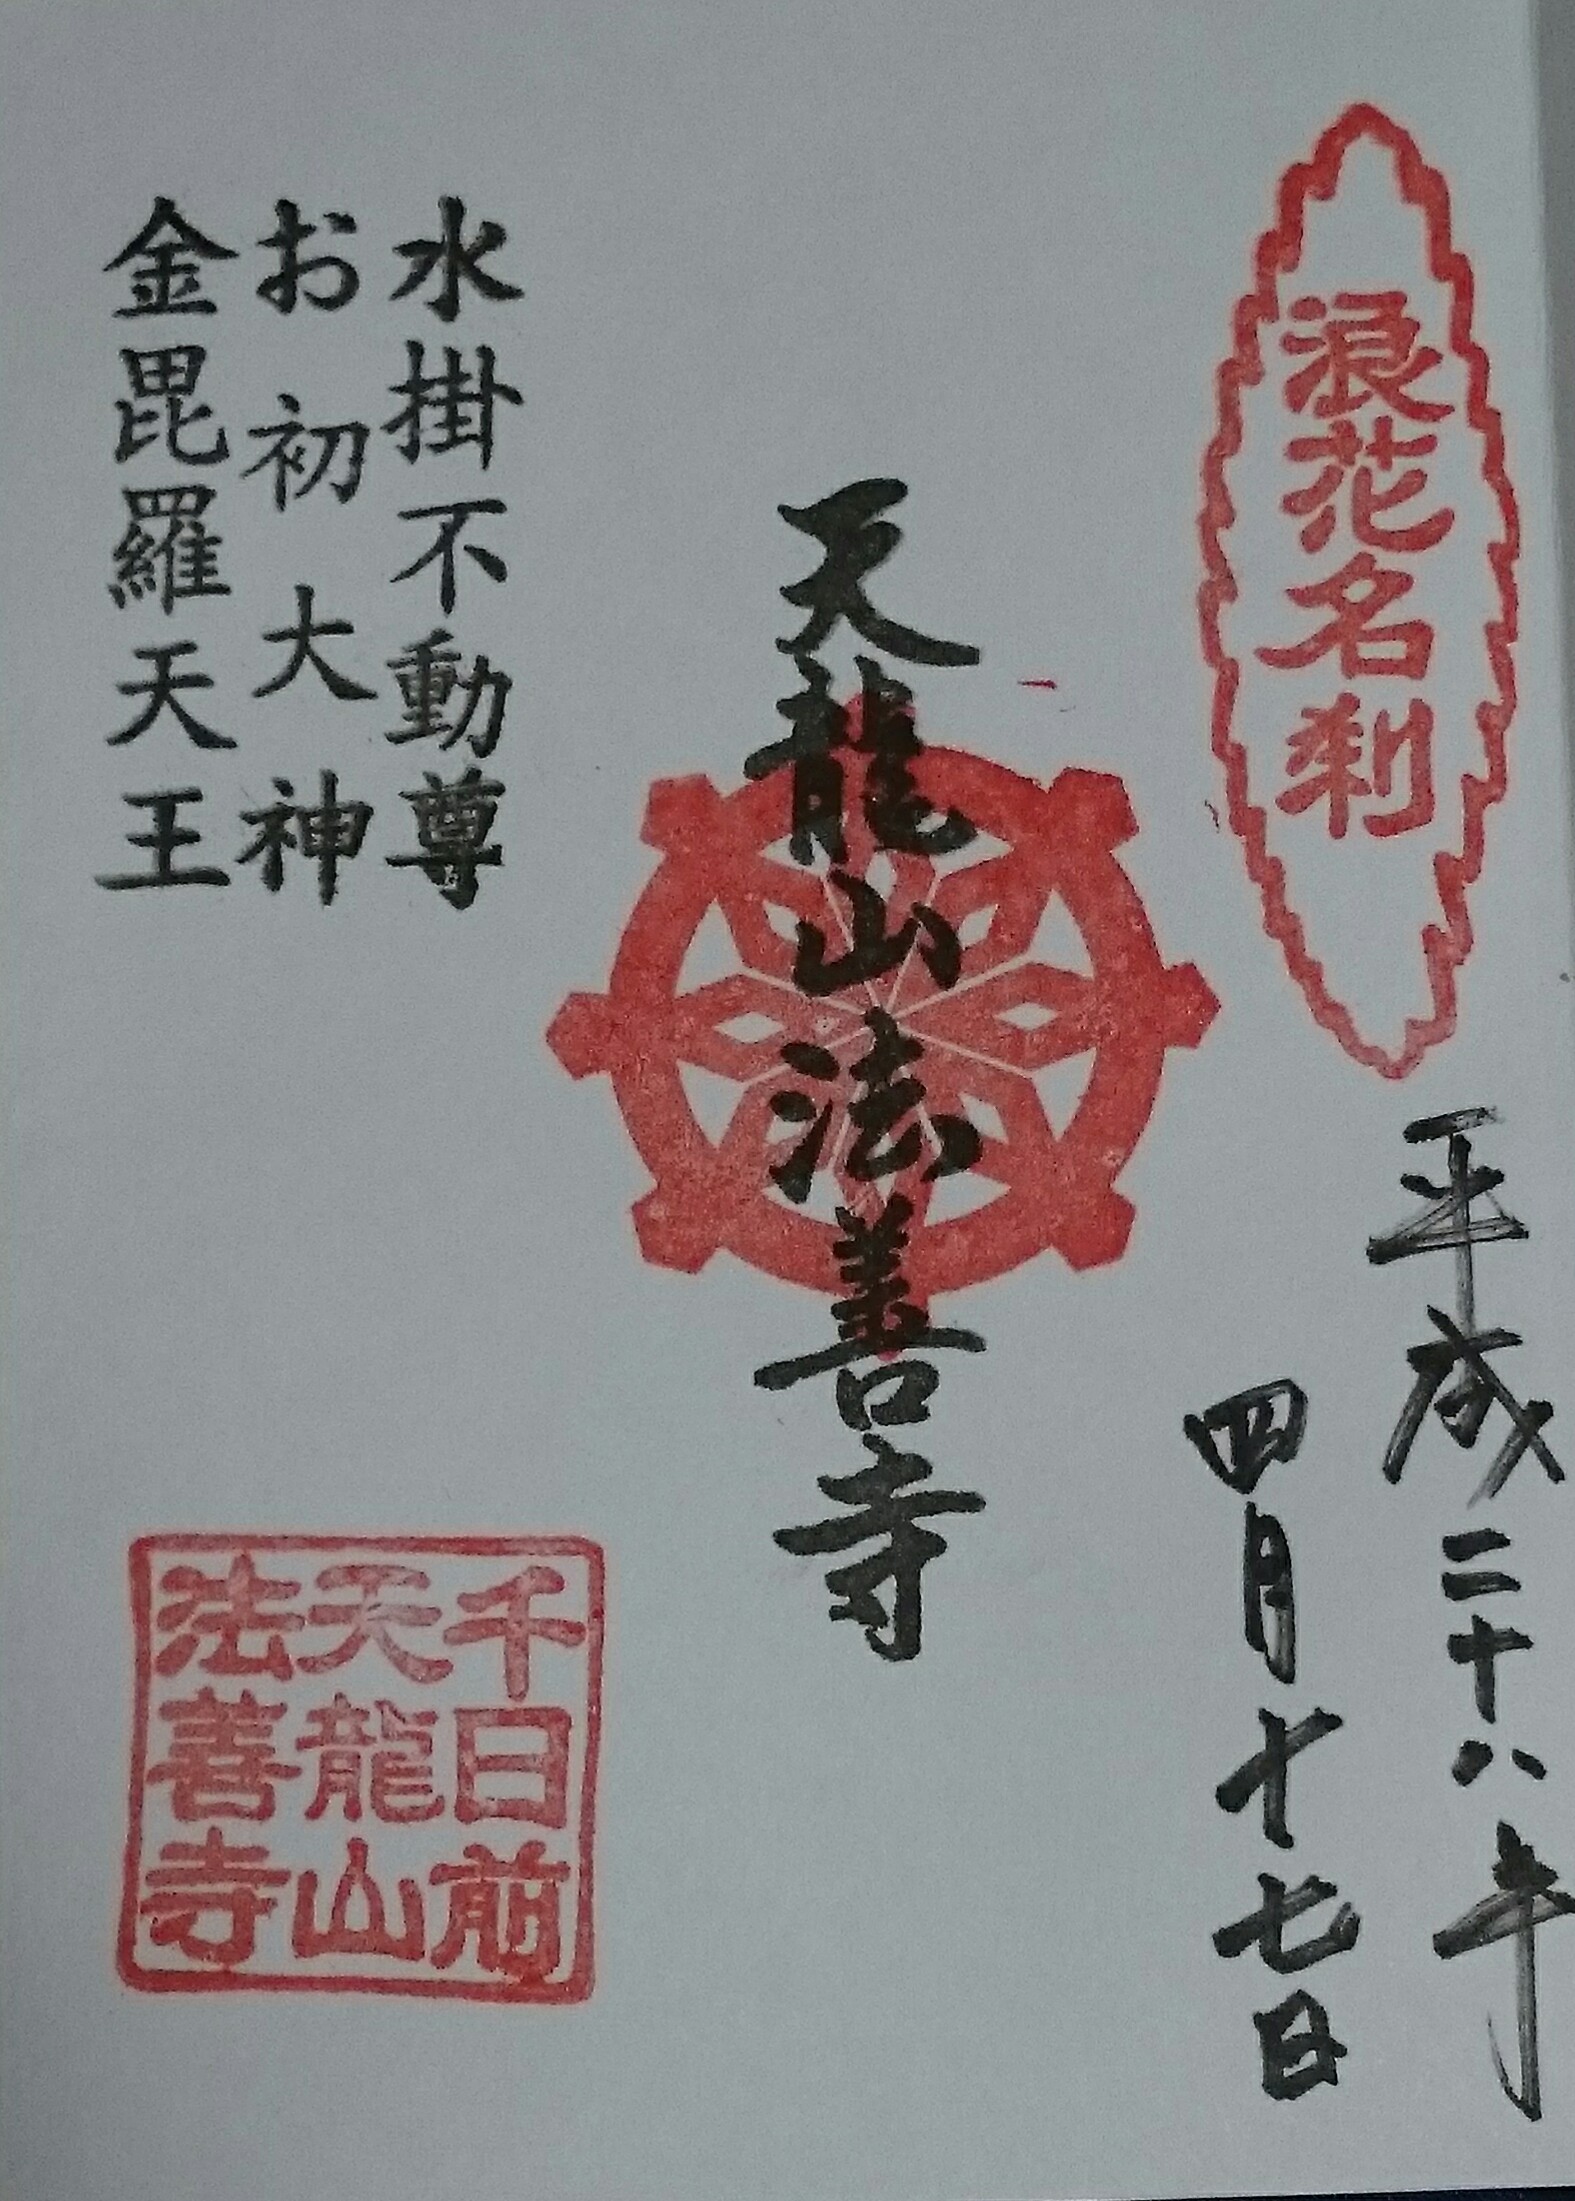 浪花名刹
平成二十八年
四月十七日
天龍山法善寺
水掛不動尊
お初大神
金毘羅天王
千日前
天龍山
法善寺